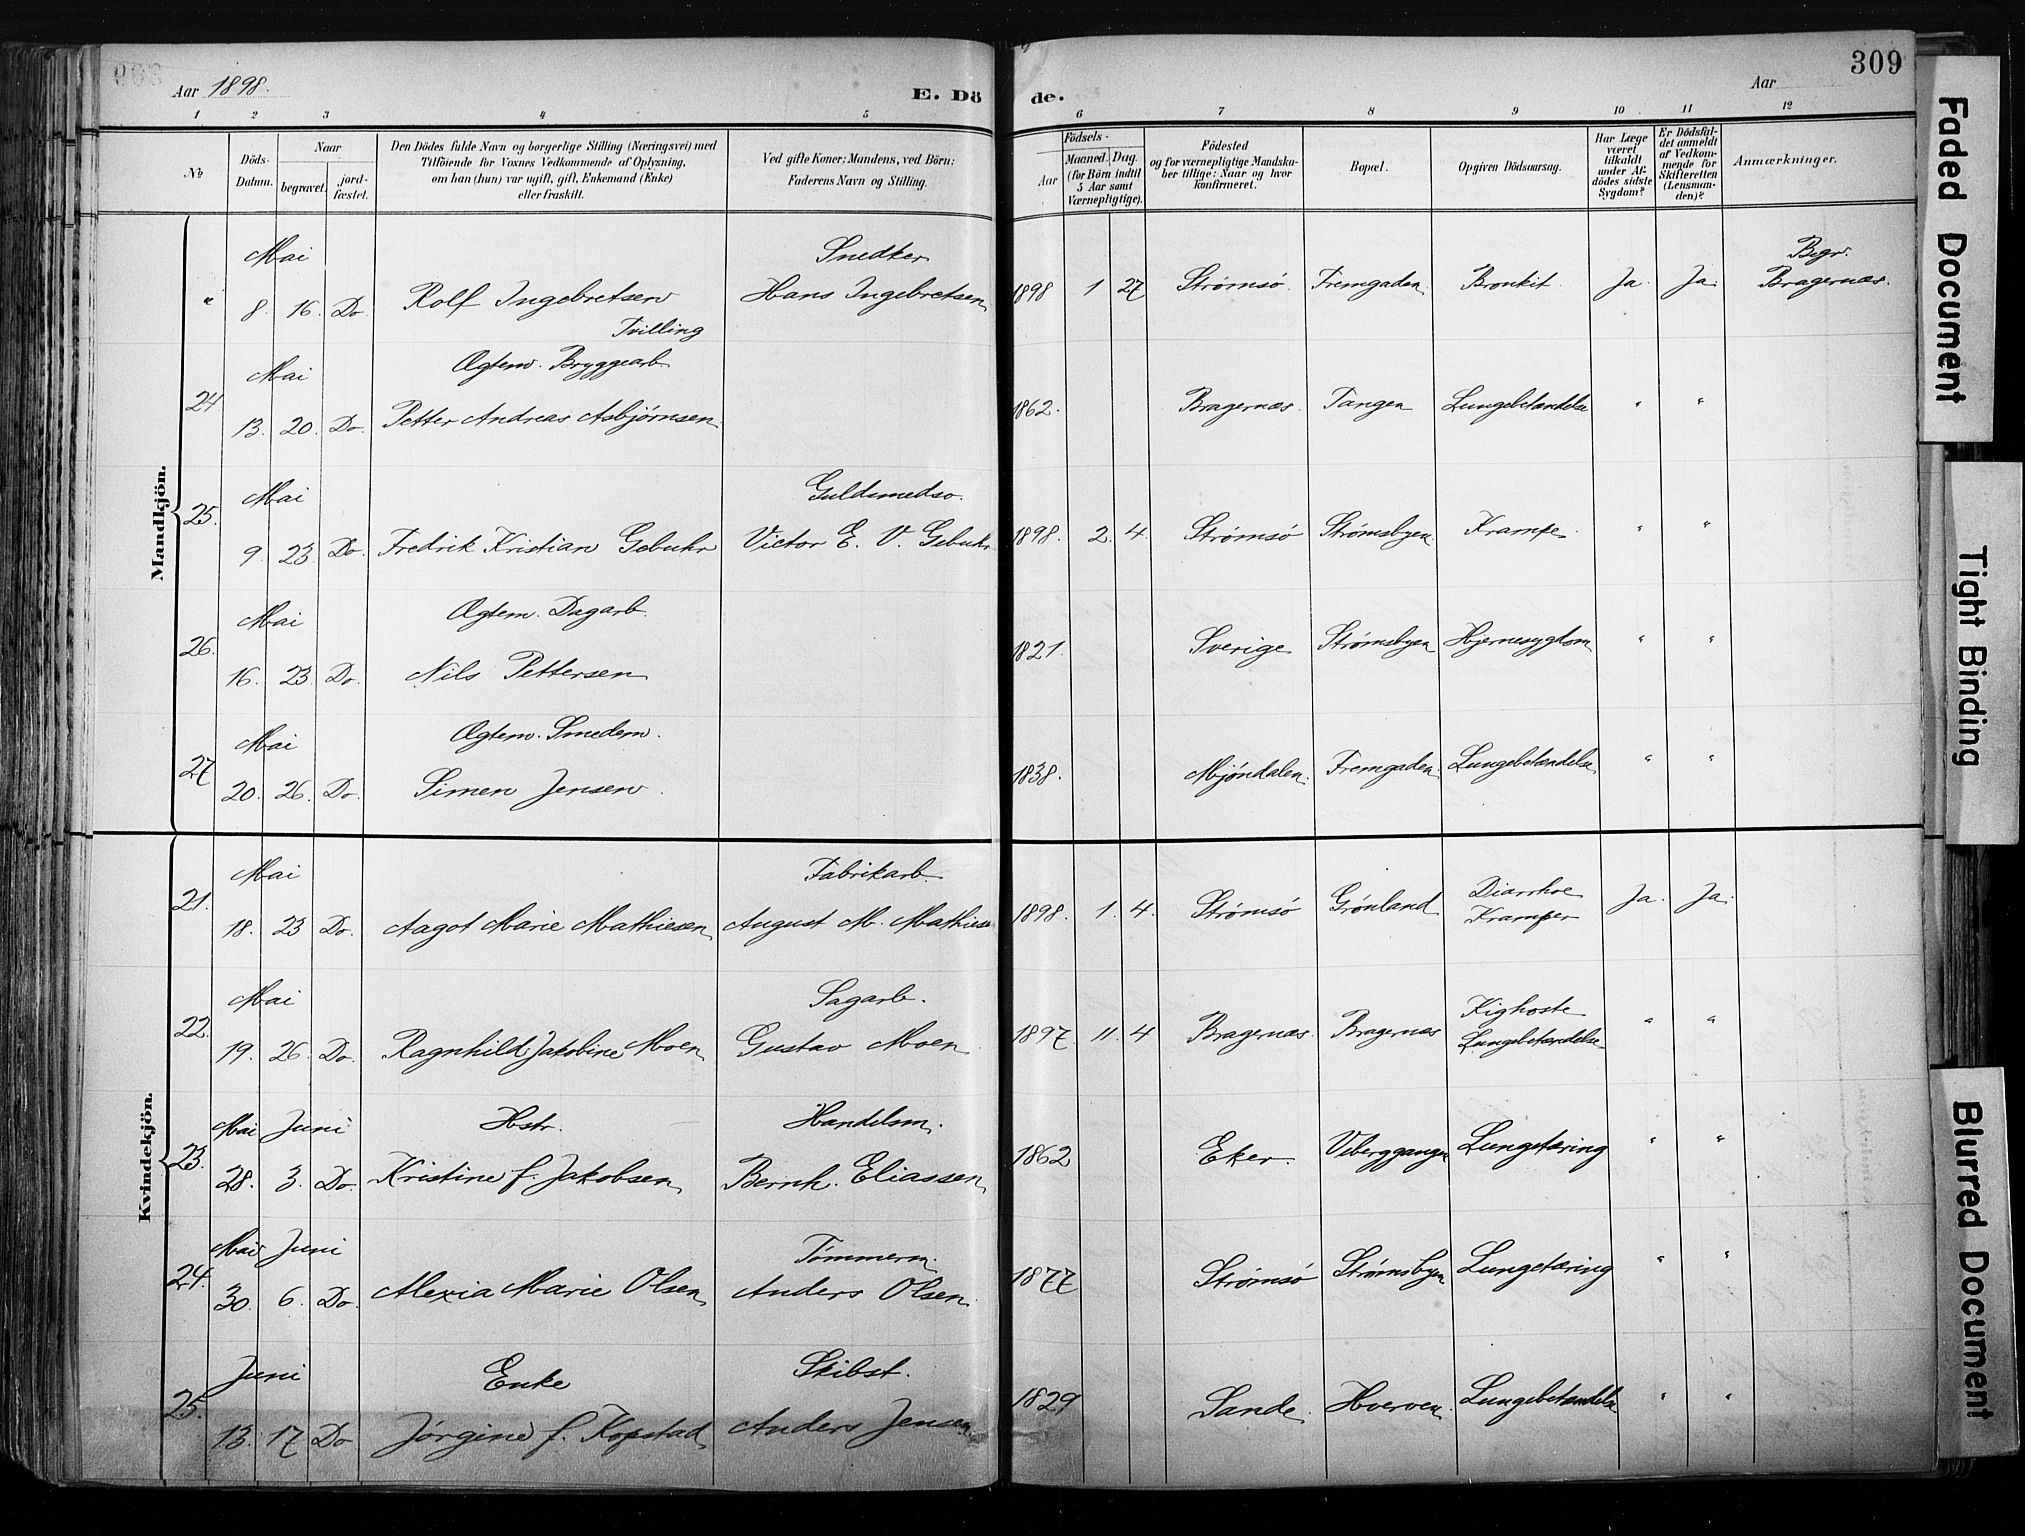 Aar 1898.
E. Dö de.
Aar
309
1 2 3 4 5 6 7 8 9 10 11 12
No
Döds-Datum.
Naar
begravet.
jord-fæstet.
Den Dödes fulde Navn og borgerlige Stilling (Næringsvei) med
Tilföiende for Voxnes Vedkommende af Oplysning,
om han (hun) var ugift, gift, Enkemand (Enke)
eller fraskilt.
Ved gifte Koner: Mandens, ved Börn:
Faderens Navn og Stilling.
Födsels-
Aar
Maaned. Dag.
(for Börn indtil
5 Aar samt
Værnepligtige).
Födested
og for værnepligtige Mandska-
ber tillige: Naar og hvor
konfirmeret.
Bopæl.
Opgiven Dödsaarsag.
Har Læge
været
tilkaldt
under Af-
dödes sidste
Sygdom?
Er Dödsfal-
det anmeldt
af Vedkom-
mende for
Skifteretten
(Lensman-
den)?
Anmærkninger.
Mandkjön.
Mai Snedker Begr.
" 8. 16. Do. Rolf Ingebretsen Hans Ingebretsen 1898 1 27 Strømsø. Fremgaden. Bronkit. Ja. Ja. Bragernæs.
Tvilling
Mai Ægtem. Bryggearb.
24 13. 20. Do. Petter Andreas Asbjørnsen 1862. Bragernæs. Tangen Lungebetændelse " "
Mai Guldsmedsv.
25. 9. 23. Do. Fredrik Kristian Gebuhr Victor E. V. Gebuhr 1898. 2. 4. Strømsø Strømsbyen Krampe. " "
Mai Ægtem. Dagarb.
26. 16. 23. Do. Nils Pettersen 1821. Sverige Strømsbyen Hjernesygdom " "
Mai Ægtem. Smedem.
27 20. 26. Do. Simen Jensen. 1838. Mjøndalen. Fremgaden. Lungebetændelse " "
Kvindekjön.
Mai Fabrikarb. Diarrhoe
21. 18. 23 Do. Aagot Marie Mathiesen August M. Mathiese 1898. 1. 4. Strømsø Grønland Kramper Ja. Ja.
Mai Sagarb. Kighoste
22. 19. 26. Do. Ragnhild Jakobine Moen Gustav Moen 1897. 11. 4 Bragernæs. Bragernæs Lungebetændelse " "
Mai Juni Hstr. Handelsm.
23. 28. 3. Do. Kristine f. Jakobsen Bernh. Eliassen 1862 Eker. Viberggangen Lungetæring " "
Mai Juni Tømmerm.
24. 30. 6. Do. Alexia Marie Olsen Anders Olsen. 1877 Strømsø Strømsbyen Lungetæring " "
Juni Enke Skibst.
25. 13. 17 Do Jørgine f. Kopstad Anders Jensen 1829 Sande. Hverven. Lungebetændelse " "
Faded Document
Tight Binding
Blurred Document